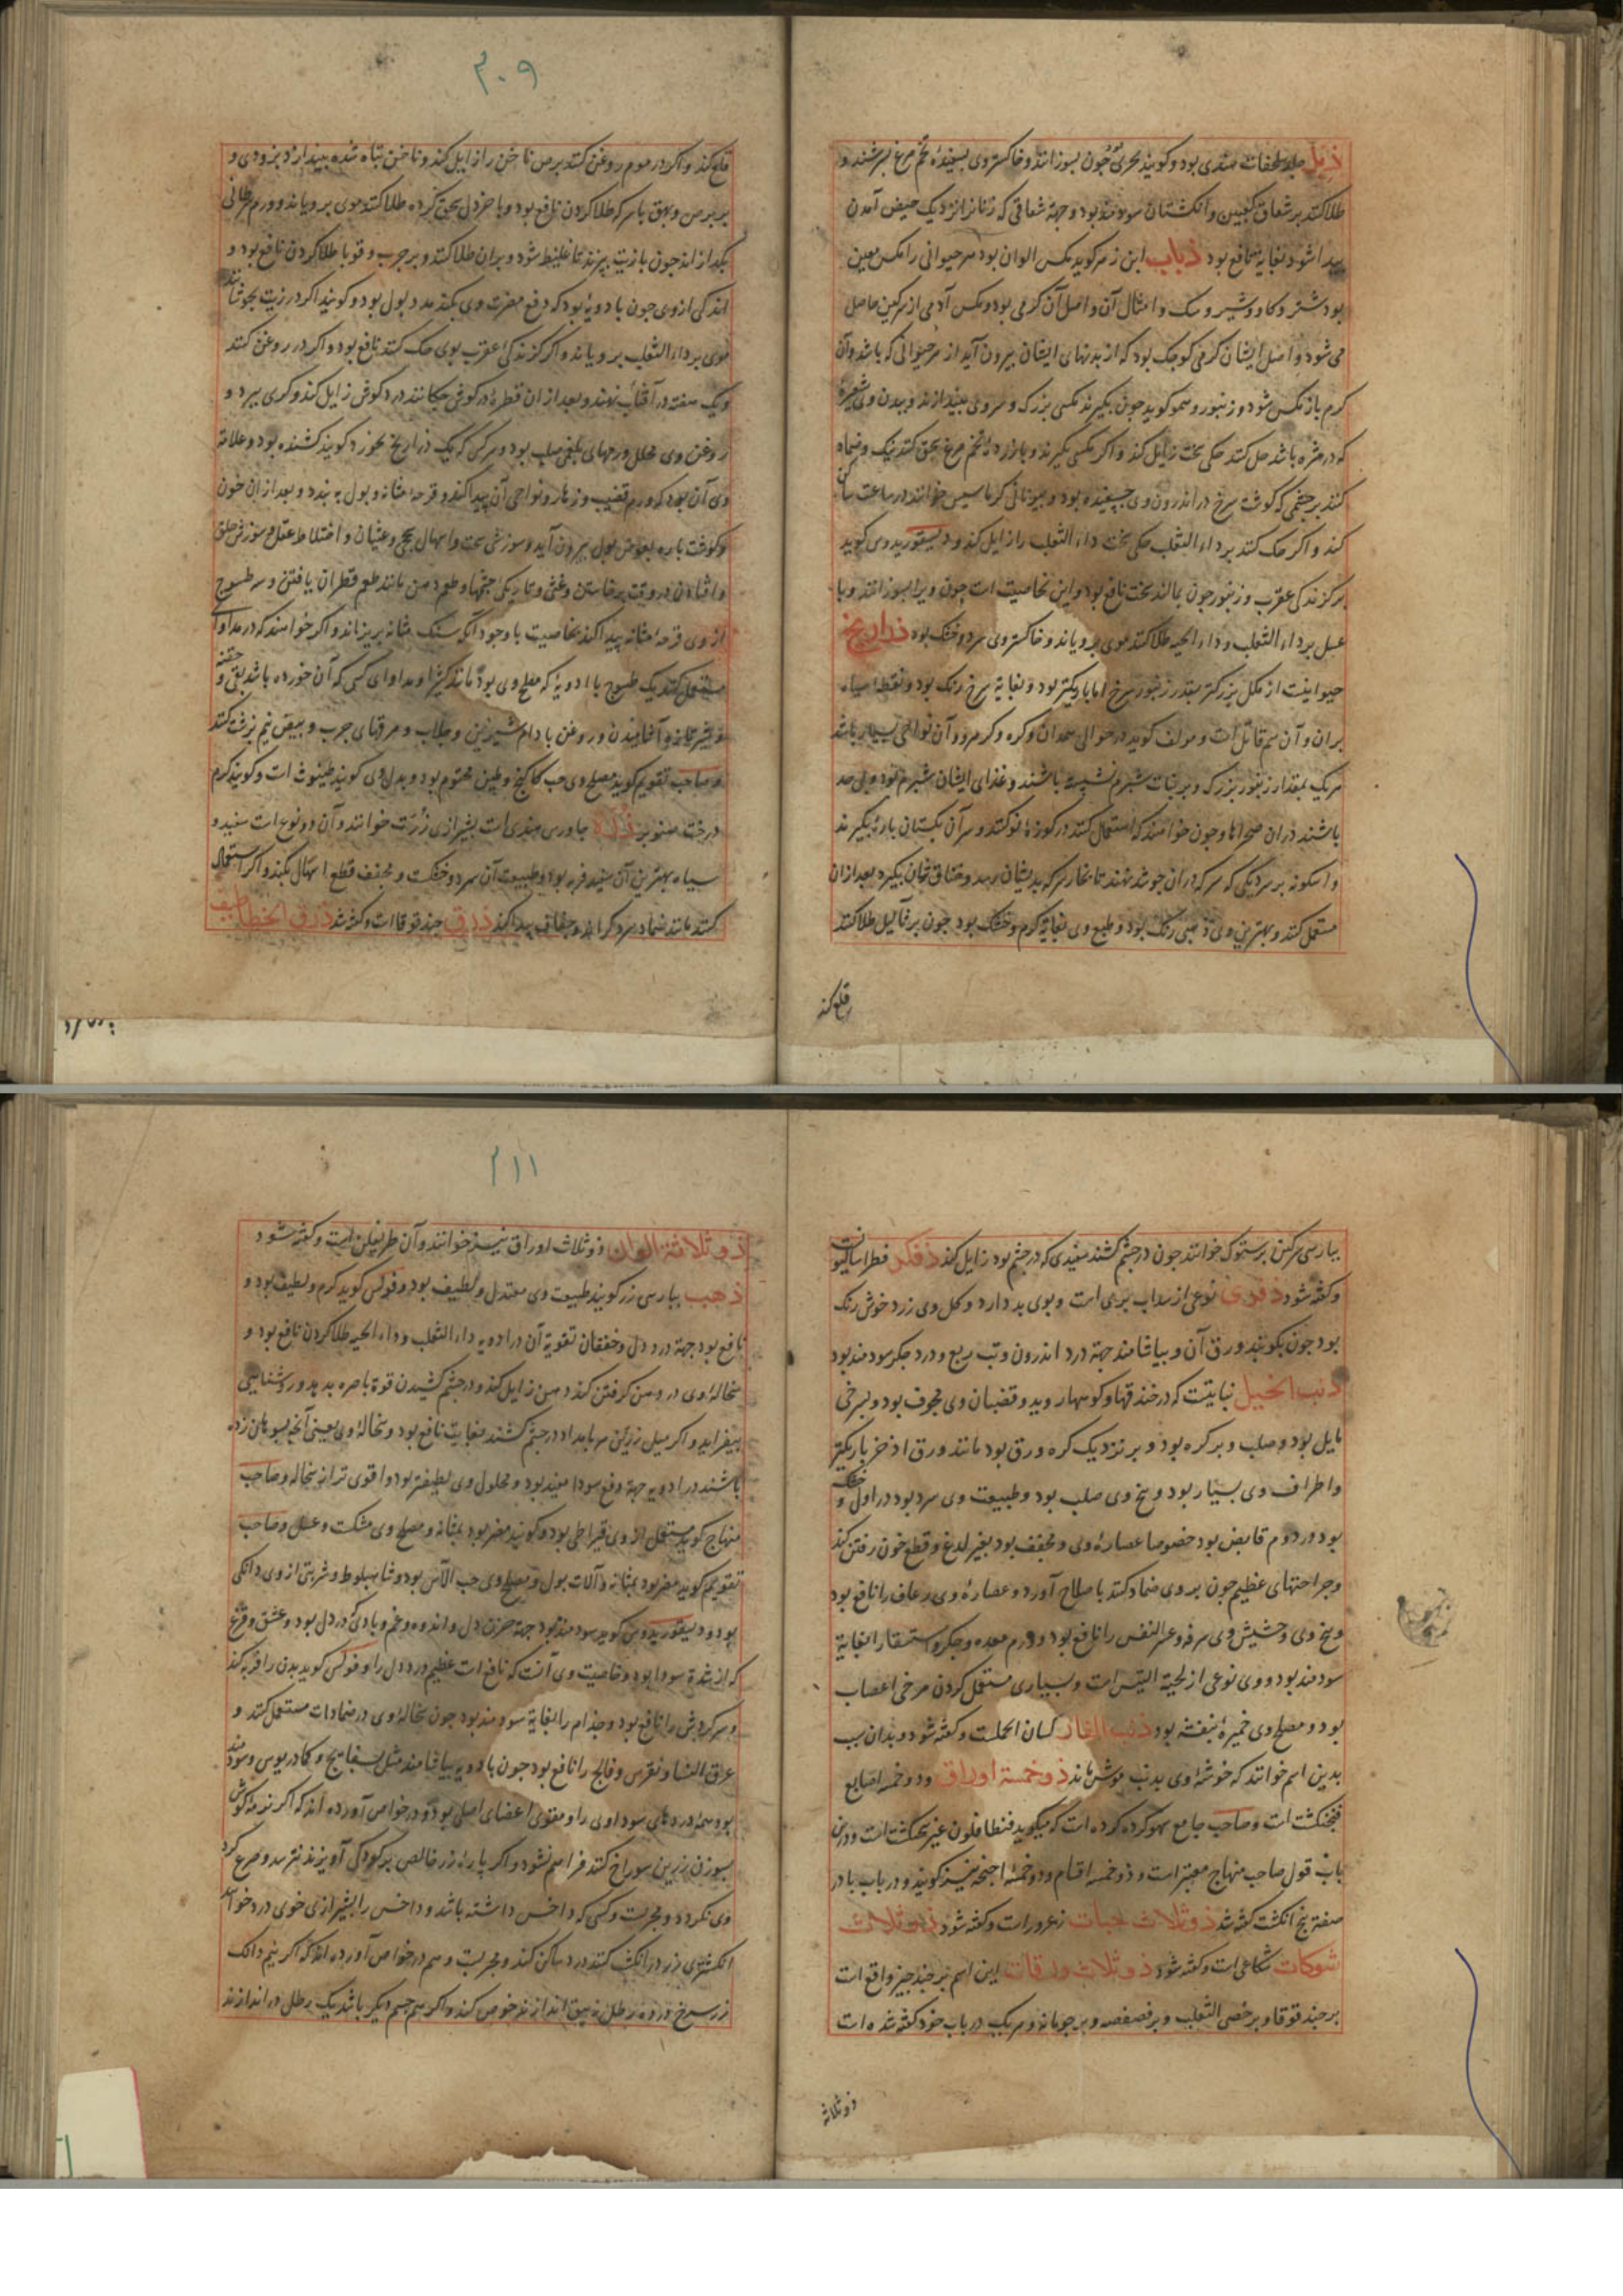 ذبل جلد سلحفات هندی بود و کویند بحری جون بسوزانند و خاکستر وی بسفیدهٔ تخم مرغ بسرشند و
طلا کنند بر شقاق کعبین و انکشتان سودمند بود و جهة شقاقی که زنانرا نزدیک حیض آمدن
پیدا شود بغایة نافع بود ذباب ابن زهر کوید مکس الوان بود هر حیوانی را مکس معین
بود شتر و کاو و شیر و سک و امثال آن و اصل آن کرمی بود و مکس آدمی از سرکین حاصل
می شود و اصل ایشان کرمی کوجک بود که از بدنهای ایشان بیرون آید از هر حیوانی که باشد و آن
کرم باز مکس شود و زنبور و همو کوید جون بکیرند مکسی بزرک و سر وی بیندازند و ببدن وی شعیره
که در مژه باشد حک کنند حکی سخت زایل کند و اکر مکسی بکیرند و با زردهٔ تخم مرغ سحق کنند نیک و ضماد
کنند بر جشمی که کوشت سرخ در اندرون وی جسفیده بود و بیونانی کرماسیس خوانند در ساعت ساکن
کند و اکر حک کنند بر داء الثعلب حکی سخت داء الثعلب را زایل کند و دیسقوریدوس کوید
بر کزندکی عقرب و زنبور جون بمالند سخت نافع بود و این بخاصیت است جون ویرا بسوزانند و با
عسل بر داء الثعلب و داء الحیه طلا کنند موی برویاند و خاکستر وی سرد و خشک بود ذراریح
حیوانیست از مکل بزرکتر بقدر زنبور سرخ اما باریکتر بود و بغایة سرخ رنک بود و نقطه سیاه
بران و آن سم قاتل است و مولف کوید در حوالی همدان و کره و کرمرود و آن نواحی بسیار باشد
هریک بمقدار زنبور بزرک و بر نبات شبرم نشسته باشند و غذای ایشان شبرم بود و بی حد
باشند دران صحراها و جون خواهند که استعمال کنند در کوزهٔ نو کنند و سر آن بکتان پارهٔ بکیرند
و اسکونه بر سر دیکی که سرکه دران جوشد نهند تا بخار سرکه بدیشان رسد و خناق شان بکیرد بعد ازان
مستعمل کنند و بهترین وی ذهبی رنک بود و طبع وی بغایة کرم و خشک بود جون بر ثآلیل طلا کنند
قلع کند
۲۰۹
قلع کند و اکر در موم روغن کنند برص ناخن را زایل کند و ناخن تباه شده بیندازد بزودی و
بر برص و بهق با سرکه طلا کردن نافع بود و با خردل سحق کرده طلا کنند موی برویاند و ورم سرطانی
بکدازاند جون با زیت بپزند تا غلیظ شود و بران طلا کنند و بر جرب و قوبا طلا کردن نافع بود و
اندکی از وی جون با دویهٔ بود که دفع مضرت وی بکند مدر بول بود و کویند اکر در زیت بجوشانند
موی بر داء الثعلب برویاند و اکر کزندکی عقرب بوی حک کنند نافع بود و اکر در روغن کنند
و یک هفته در آفتاب نهند و بعد ازان قطرهٔ در کوش جکانند درد کوش زایل کند و کری ببرد و
روغن وی محلل ورمهای بلغمی صلب بود و هر کس که یک ذراریح بخورد کویند کشنده بود و علامة
وی آن بود که ورم قضیب و زهار و نواحی آن پیدا کند و قرحهٔ مثانه و بول به بندد و بعد ازان خون
و کوشت پاره بعوض بول بیرون آید و سوزشی سخت و اسهال سحج و غثیان و اختلاط عقل و سوزش حلق
و افتادن در وقت برخاستن و غشی و تاریکی جشمها و طعم دهن مانند طعم قطران یافتن و سه طسوج
از وی قرحهٔ مثانه پیدا کند بخاصیت با وجود آنکه سنک مثانه بریزاند و اکر خواهند که در مداوا
مستعمل کنند یک طسوج با ادویهٔ که مصلح وی بود مانند کثیرا و مداوای کسی که آن خورده باشد بقی و حقنه
و شیر تازه آشامیدن و روغن بادام شیرین و جلاب و مرقهای جرب و بیض نیم برشت کنند
و صاحب تقویم کوید مصلح وی حب کاکنج و طین مختوم بود و بدل وی کویند طینوث است و کویند کرم
درخت صنوبر ذره جاورس هندی است بشیرازی زرت خوانند و آن دو نوع است سفید و
سیاه بهترین آن سفید فربه بود و طبیعت آن سرد و خشکست و مجفف قطع اسهال بکند و اکر استعمال
کنند مانند ضماد سرد کرداند و جفاف پیدا کند ذرق حندقوقا است و کفته شد ذرق الخطاطیف
بپارسی سرکین پرستوک خوانند جون در جشم کشند سفیدی که در جشم بود زایل کند ذفکن قطراسالیون
و کفته شود ذفوی نوعی از سداب بری است و بوی بد دارد و کل وی زرد خوش رنک
بود جون بکوبند ورق آن و بیاشامند جهة درد اندرون و تب ربع و درد جکر سودمند بود
ذنب الخیل نباتیست که در خندقها و کوهها روید و قضبان وی مجوف بود و بسرخی
مایل بود و صلب و بر کره بود و بر نزدیک کره ورق بود مانند ورق اذخر باریکتر
و اطراف وی بسیار بود و بیخ وی صلب بود و طبیعت وی سرد بود در اول و خشک
بود در دوم قابض بود خصوصا عصارهٔ وی و مجفف بود بغیر لدغ و قطع خون رفتن کند
و جراحتهای عظیم جون بر وی ضماد کنند باصلاح آورد و عصارهٔ وی رعاف را نافع بود
و بیخ وی و حشیش وی سرفه و عسر النفس را نافع بود و ورم معده و جکر و استسقا را بغایة
سودمند بود و وی نوعی از لحیة التیس است و بسیاری مستعمل کردن مرخی اعصاب
بود و مصلح وی خمیرهٔ بنفشه بود ذنب الفار لسان الحملست و کفته شود و بدان سبب
بدین اسم خوانند که خوشهٔ وی بدنب موش ماند ذو خمسة اوراق و ذو خمسة اصابع
فنجنکشت است و صاحب جامع سهو کرده است که میکوید فنطافلون غیر بنجنکشت است و درین
باب قول صاحب منهاج معتبر است و ذو خمسه اقسام و ذو خمسهٔ اجنحه نیز کویند و در باب با در
صفت بنج انکشت کفته شد ذو ثلاث حبات زعرورات و کفته شود ذو ثلاث
شوکات شکاعی است و کفته شود ذو ثلاث ورقات این اسم بر جند جیز واقع است
بر حندقوقا و بر خصی الثعلب و بر فصفصه و بر حومانه و هریک در باب خود کفته شده است
ذو ثلاثه
۲۱۱
ذو ثلاثة الوان ذو ثلاث اوراق نیز خوانند و آن طریفلن است و کفته شود
ذهب بپارسی زر کویند طبیعت وی معتدل و لطیف بود و فولس کوید کرم و لطیف بود و
نافع بود جهة درد دل و خفقان تقویة آن در ادویه داء الثعلب و داء الحیه طلا کردن نافع بود و
سحالهٔ وی در دهن کرفتن کند دهن زایل کند و در جشم کشیدن قوة باصره بدهد و روشنایی
بیفزاید و اکر میل زرین هر بامداد در جشم کشند بغایت نافع بود و سحالهٔ وی یعنی آنجه بسوهان زده
باشند در ادویه جهة دفع سودا مفید بود و محلول وی لطیفتر بود و اقوی تر از سحاله و صاحب
منهاج کوید مستعمل از وی قیراطی بود و کویند مضر بود بمثانه و مصلح وی مشکست و عسل و صاحب
تقویم کوید مضر بود بمثانه و آلات بول و مصلح وی حب الآس بود و شاهبلوط و شربتی از وی دانکی
بود و دیسقوریدوس کوید سودمند بود جهة حزن دل و اندوه و غم و بادکی در دل بود و عشق و فزع
که از شدة سودا بود و خاصیت وی آنست که نافع است عظیم درد دل را و فولس کوید بدن را فربه کند
و سرکردش را نافع بود و جذام را بغایة سودمند بود جون سحالهٔ وی در ضمادات مستعمل کنند و
عرق النسا و نقرس و فالج را نافع بود جون با ادویه بیاشامند مثل بسفایج و کمادریوس و سودمند
بود همه دردهای سوداوی را و مقوی اعضای اصلی بود و در خواص آورده اند که اکر نرمهٔ کوش
بسوزن زرین سوراخ کنند فراهم نشود و اکر پارهٔ زر خالص بر کودکی آویزند نترسد و صرع کرد
وی نکردد و مجربست و کسی که داخس داشته باشد و داخس را بشیرازی خوی درد خوانند
انکشتری زر در انکشت کنند درد ساکن کند و مجربست و هم در خواص آورده اند که اکر نیم دانک
زر سرخ در ده رطل زیبق اندازند غوص کند و اکر هم جسم دیکر باشد یک رطل در اندازند